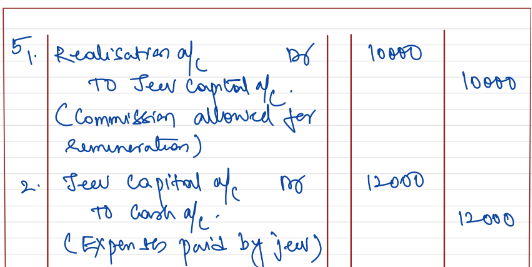 5,1. Realisation a/c Dr 10000
TO Jeev Capital a/c. 10000
(Commission allowed for
remuneration)
2. Jeev Capital a/c Dr 12000
TO Cash a/c. 12000
(Expenses paid by jeev)